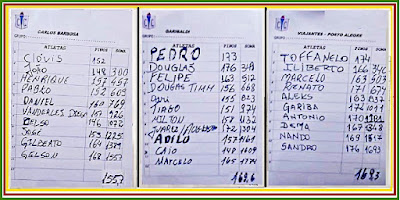 CARLOS BARBOSA
GRUPO:
ATLETAS PINOS SOMA
Clóvis 152
João 148 300
HENRIQUE 157 457
PABLO 152 609
DANIEL 160 769
VANDERLEI 157 926
CELSO 146 1072
JOSÉ 153 1225
GILBERTO 164 1389
GELSON 168 1557
1557
GARIBALDI
GRUPO:
ATLETAS PINOS SOMA
PEDRO 173
DOUGLAS 176 349
FELIPE 163 512
DOUGLAS 156 668
155 823
TIAGO 151 974
MILTON 158 432
JUAREZ 172 1304
ADILO 157 1461
CAIO 148 1609
MARCELO 165 1774
1626
VIAJANTES - PORTO ALEGRE
GRUPO:
ATLETAS PINOS SOMA
TOFFANELO 174
ILIBERTO 166 340
MARCELO 163 503
RENATO 171 674
ALEKS 163 837
GARIBA 174 1011
ANTONIO 170 1181
DEMA 167 1348
NANDO 169 1517
SANDRO 176 1693
1693